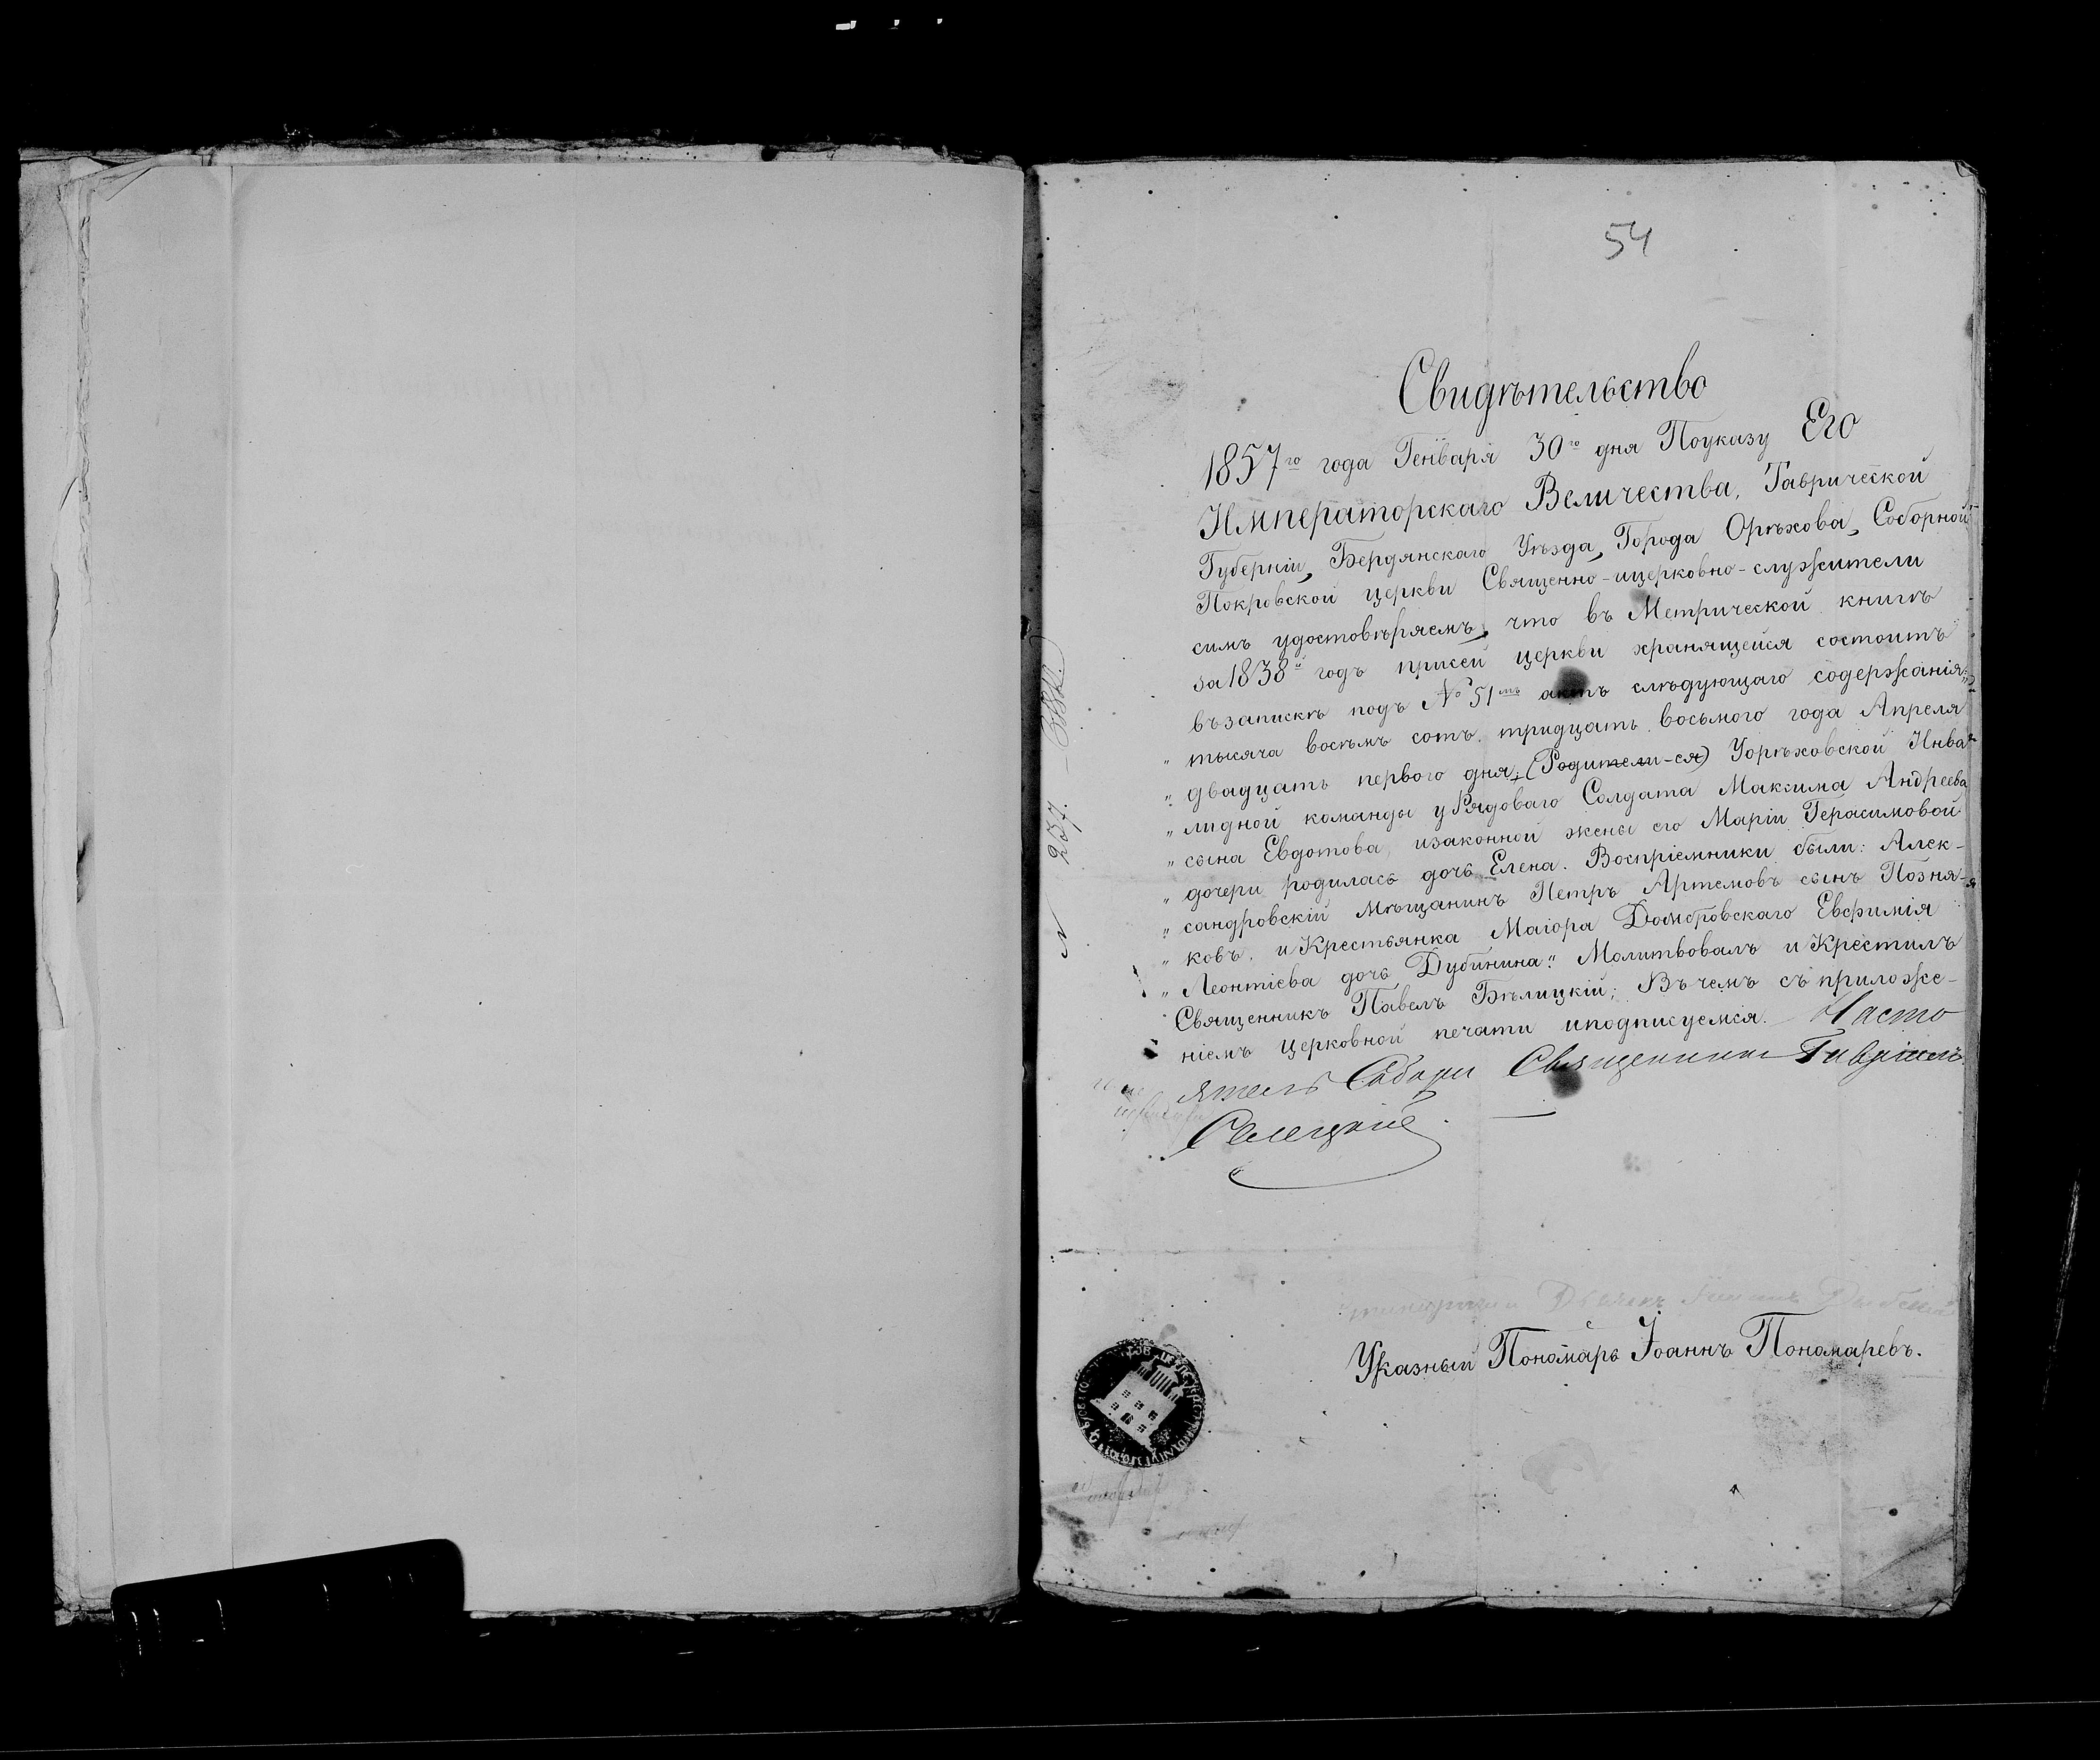 54
Свидѣтельство
1857го года Генваря 30го дня Поуказу Его
Императорскаго Величества, Таврической
Губерніи, Бердянскаго Уѣзда, Города Орѣхова, Соборной
Покровской церкви Священно-ицерковно-служители
симъ удостовѣряемъ, что въ Метрической книгѣ
за 1838й годъ присей церкви хранящейся состоитъ
възапискѣ подъ № 51мъ актъ слѣдующаго содержанія:
„ тысяча восѣмъ сотъ тридцать восьмого года Апреля
„ двадцать первого дня, (Родители-ся) Уорѣховской Инва-
„ лидной команды уРядоваго Солдата Максима Андреева
„ сына Евдотова, изаконной жены его Маріи Герасимовой
„ дочери родилась дочь Елена. Воспріемники были: Алек-
„ сандровскій Мѣщанинъ Петръ Артемовъ сынъ Позня-
„ ковъ, и Крестьянка Маіора Домбровскаго Евфимія
„ Леонтіева дочь Дубинина." Молитвовалъ и Крестилъ
Священникъ Павелъ Бѣлицкій; Въ чемъ съ приложе-
ніемъ Церковной печати иподписуемся. Насто
ятель Собора Священникъ Гавріилъ
Селецкій
Указный Пономарь Іоаннъ Пономаревъ.
№ 257.